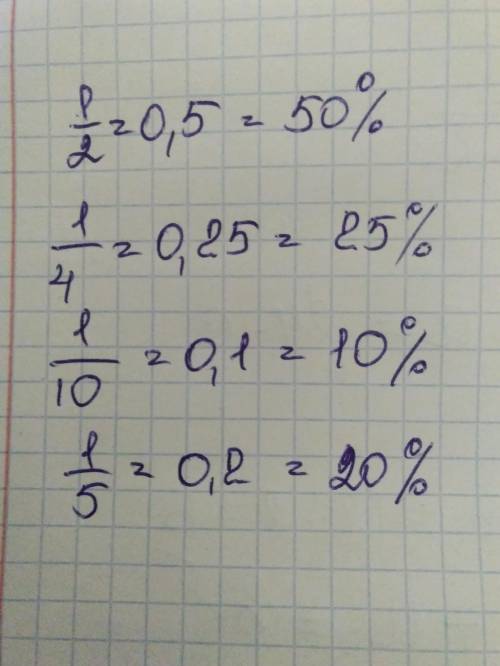 1/2 = 0,5 = 50%
1/4 = 0,25 = 25%
1/10 = 0,1 = 10%
1/5 = 0,2 = 20%